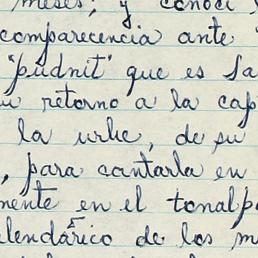 meses; y conocí
comparecencia ante
"pudnit" que es Sa
u retorno a la cap
la urbe, de su
, para cantarla en
mente en el tonalpo
alendárico de los m